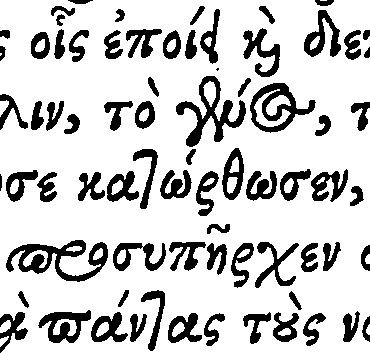 ς οἷς ἐποίει καὶ διεπ
λιν, τὸ γένος, τ
σε κατώρθωσεν,
προσυπῆρχεν
ὰ πάντας τοὺς νο